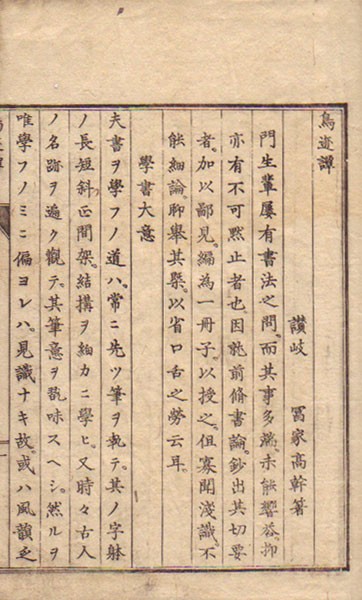 鳥迹譚
讃岐　冨家高幹著
門生輩屡有書法之問。而其事多端。未能響荅。抑
亦有不可黙止者也。因就前脩書論。鈔出其切要
者。加以鄙見。編為一冊子。以授之。但寡聞淺識。不
能細論。聊舉其槩。以省口舌之勞云耳。
學書大意
夫書ヲ學フノ道ハ。常ニ先ツ筆ヲ執テ。其ノ字躰
ノ長短斜正間架。結構ヲ細カニ學ヒ。又時々古人
ノ名跡ヲ遍ク觀テ。其筆意ヲ翫味スヘシ。然ルヲ
唯學フノミニ偏ヨレハ。見識ナキ故。或ハ風韻乏